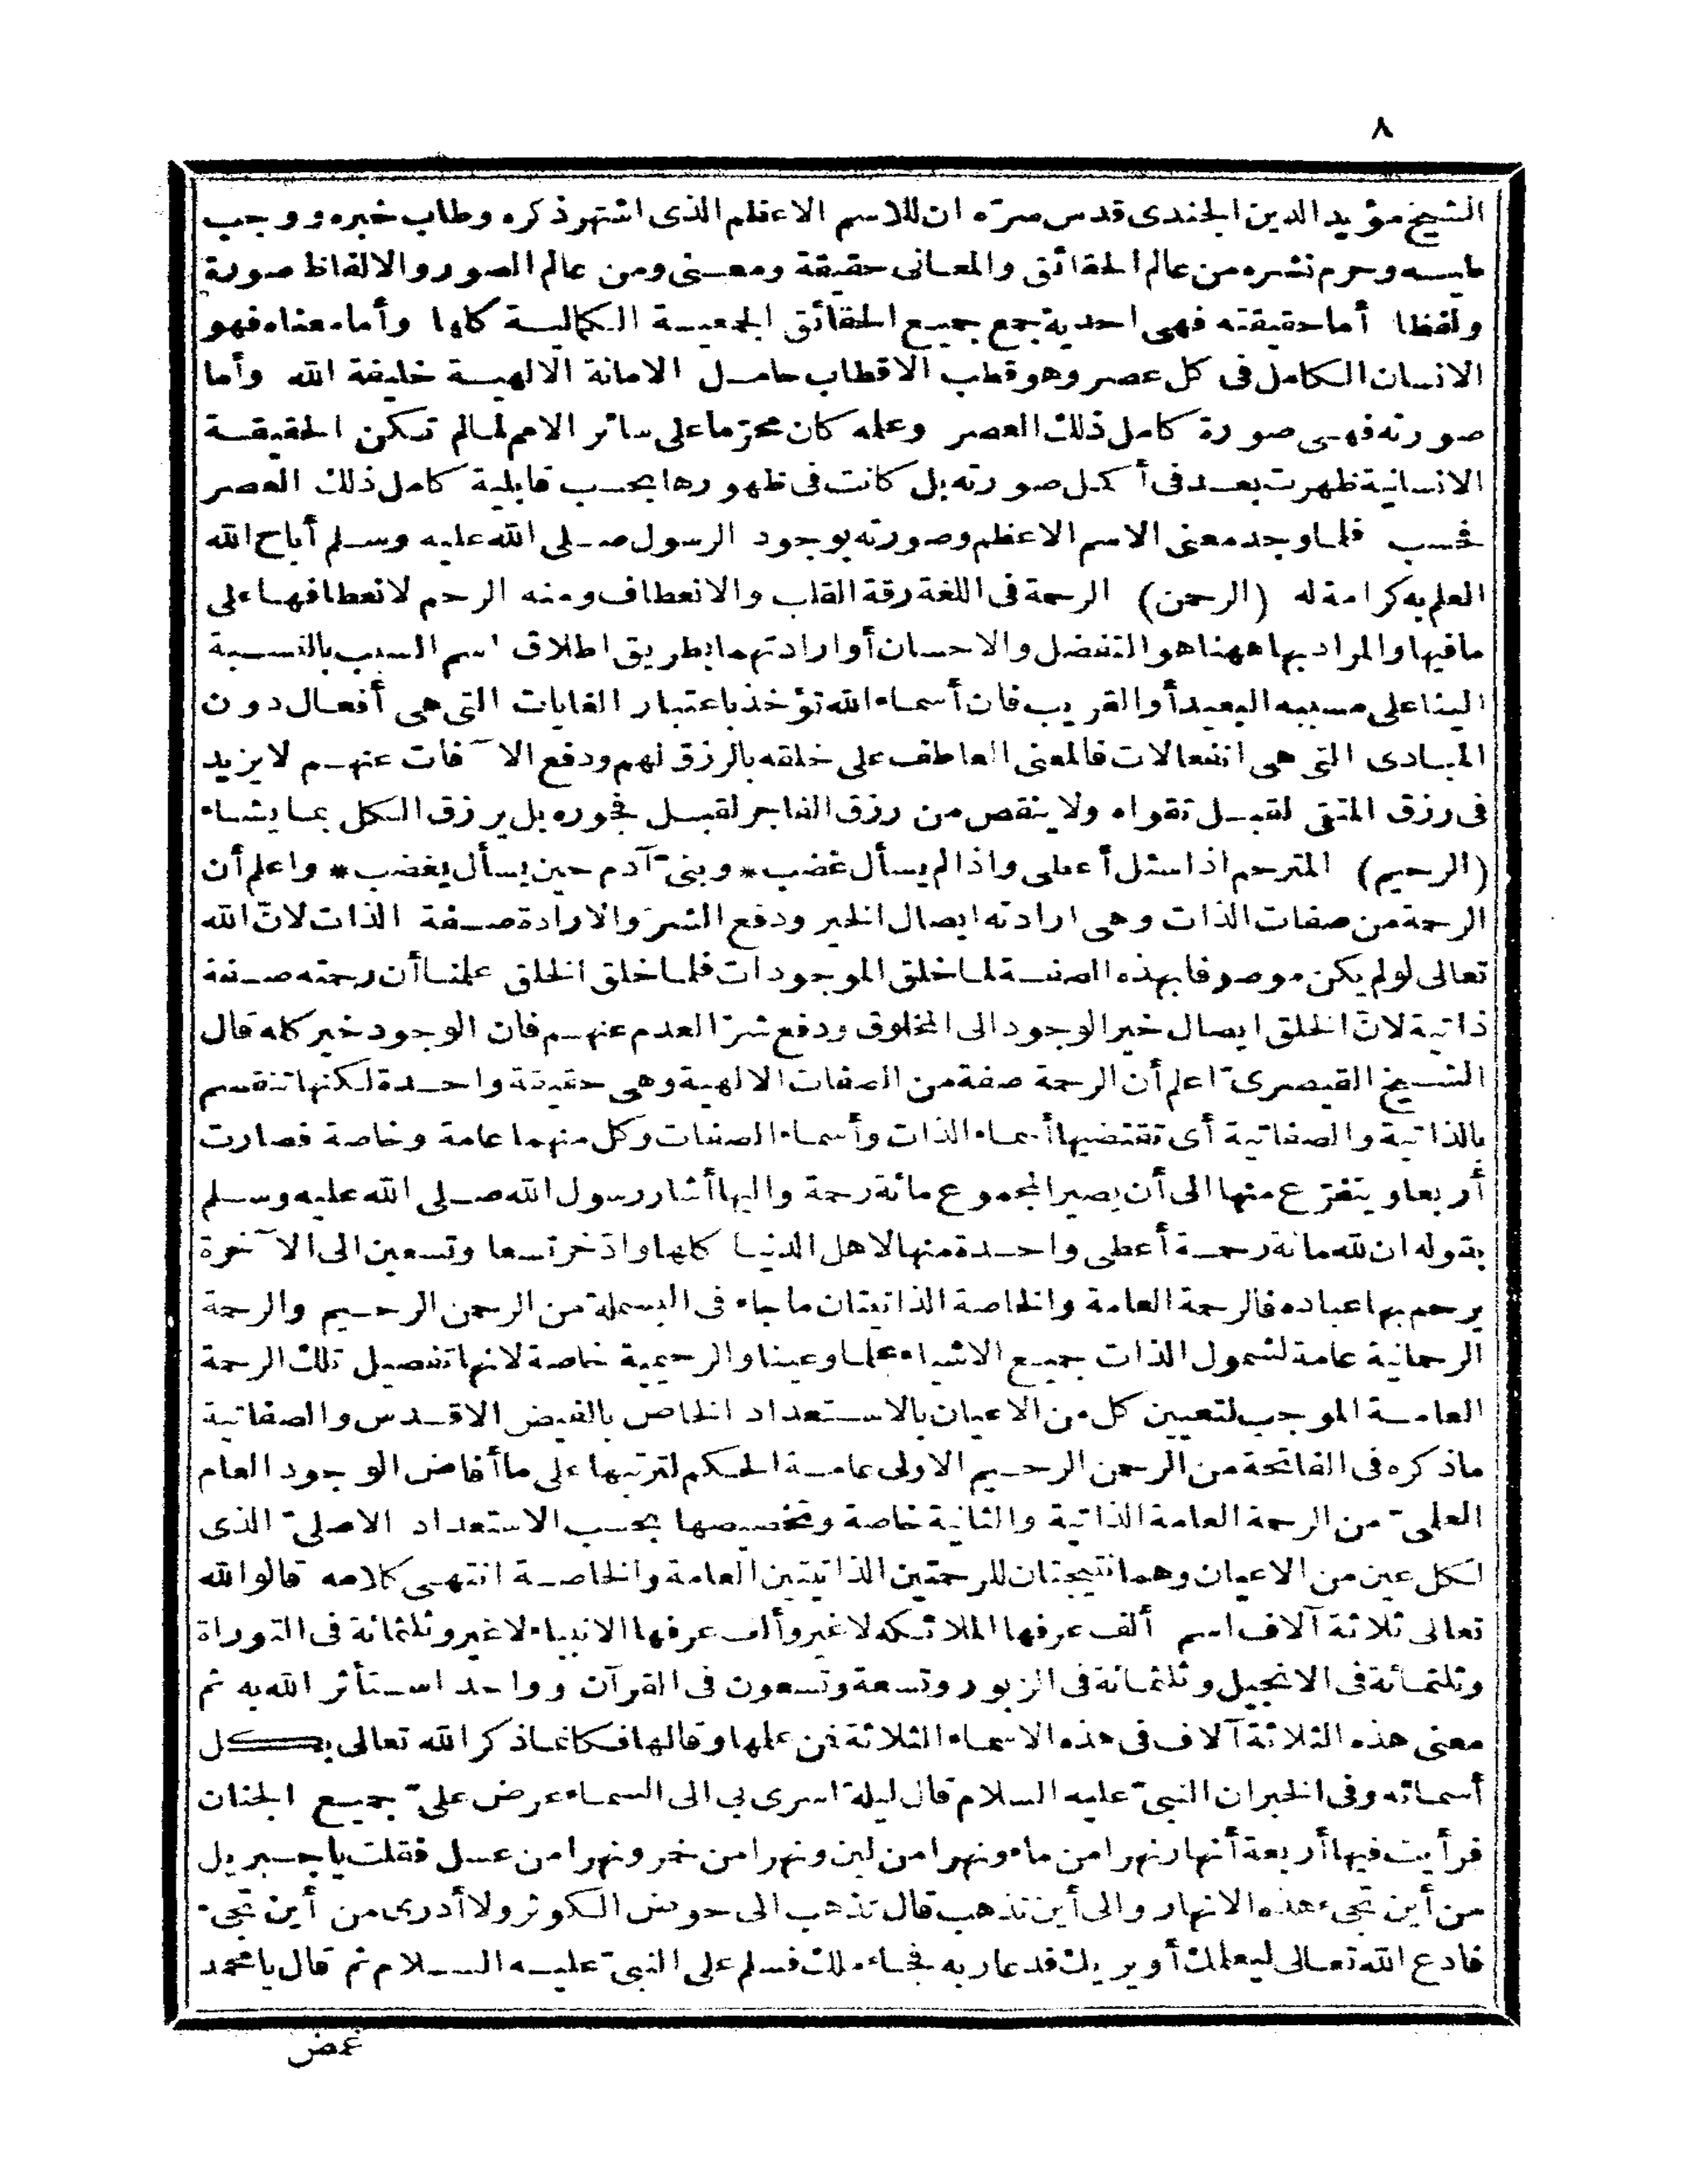 ٨
الشيخ مؤيد الدين الجندى قدس سرّه ان للاسم الاعظم الذى اشتهر ذكره وطاب خبره ووجب
طيسه وحرم نشره من عالم الحقائق والمعانى حقيقة ومعنى ومن عالم الصور والالفاظ صورة
ولفظا أما حقيقته فهى احدية جمع جميع الحقائق الجمعية الكمالية كلها وأما معناه فهو
الانسان الكامل فى كل عصر وهو قطب الاقطاب حامل الامانة الالهية خليفة الله وأما
صورته فهى صورة كامل ذلك العصر وعلمه كان محرّما على سائر الامم لما لم تكن الحقيقة
الانسانية ظهرت بعد فى أكمل صورته بل كانت فى ظهورها بحسب قابلية كامل ذلك العصر
فحسب فلما وجد معنى الاسم الاعظم وصورته بوجود الرسول صلى الله عليه وسلم أباح الله
العلم به كرامة له (الرحمن) الرحمة فى اللغة رقة القلب والانعطاف ومنه الرحم لانعطافها على
ما فيها والمراد بها ههنا هو التفضل والاحسان أو ارادتهما بطريق اطلاق اسم السبب بالنسبة
الينا على مسببه البعيد أو القريب فان أسماء الله تؤخذ باعتبار الغايات التى هى أفعال دون
المبادى التى هى انفعالات فالمعنى العاطف على خلقه بالرزق لهم ودفع الآفات عنهم لا يزيد
فى رزق المتقى لقبل تقواه ولا ينقص من رزق الفاجر لقبل فجوره بل يرزق الكل بما يشاء
(الرحيم) المترحم اذا سئل أعطى واذا لم يسأل غضب * وبنىّ آدم حين يسأل يغضب * واعلم أن
الرحمة من صفات الذات وهى ارادته ايصال الخير ودفع الشرّ والارادة صفة الذات لانّ الله
تعالى لو لم يكن موصوفا بهذه الصفة لما خلق الموجودات فلما خلق الخلق علمنا أن رحمته صفة
ذاتية لانّ الخلق ايصال خير الوجود الى المخلوق ودفع شرّ العدم عنهم فان الوجود خير كله قال
الشيخ القيصرىّ اعلم أن الرحمة صفة من الصفات الالهية وهى حقيقة واحدة لكنها تنقسم
بالذاتية والصفاتية أى تقتضيها أسماء الذات وأسماء الصفات وكل منهما عامة وخاصة فصارت
أربعا ويتفرّع منها الى أن يصير المجموع مائة رحمة واليها أشار رسول الله صلى الله عليه وسلم
بقوله ان لله مائة رحمة أعطى واحدة منها لاهل الدنيا كلها وادّخر تسعا وتسعين الى الآخرة
يرحم بها عباده فالرحمة العامة والخاصة الذاتيتان ما جاء فى البسملة من الرحمن الرحيم والرحمة
الرحمانية عامة لشمول الذات جميع الاشياء علما وعينا والرحيمية خاصة لانها تفصيل تلك الرحمة
العامة الموجب لتعيين كل من الاعيان بالاستعداد الخاص بالفيض الاقدس والصفاتية
ما ذكره فى الفاتحة من الرحمن الرحيم الاولى عامة الحكم لترتبها على ما أفاض الوجود العام
العلمىّ من الرحمة العامة الذاتية والثانية خاصة وتخصيصها بحسب الاستعداد الاصلىّ الذى
لكل عين من الاعيان وهما نتيجتان للرحمتين الذاتيتين العامة والخاصة انتهى كلامه قالوا لله
تعالى ثلاثة آلاف اسم ألف عرفها الملائكه لا غير وألف عرفها الانبياء لا غير وثلثمائة فى التوراة
وثلثمائة فى الانجيل وثلثمائة فى الزبور وتسعة وتسعون فى القرآن وواحد استأثر الله به ثم
معنى هذه الثلاثة آلاف فى هذه الاسماء الثلاثة فمن علمها وقالها فكانما ذكر الله تعالى بكل
أسمائه وفى الخبر ان النبىّ عليه السلام قال ليلة اسرى بى الى السماء عرض علىّ جميع الجنان
فرأيت فيها أربعة أنهار نهرا من ماء ونهرا من لبن ونهرا من خمر ونهرا من عسل فقلت يا جبريل
من أين تجىء هذه الانهار والى أين تذهب قال تذهب الى حوض الكوثر ولا أدرى من أين تجىء
فادع الله تعالى ليعلمك أو يريك فدعا ربه فجاء ملك فسلم على النبىّ عليه السلام ثم قال يا محمد
غمض